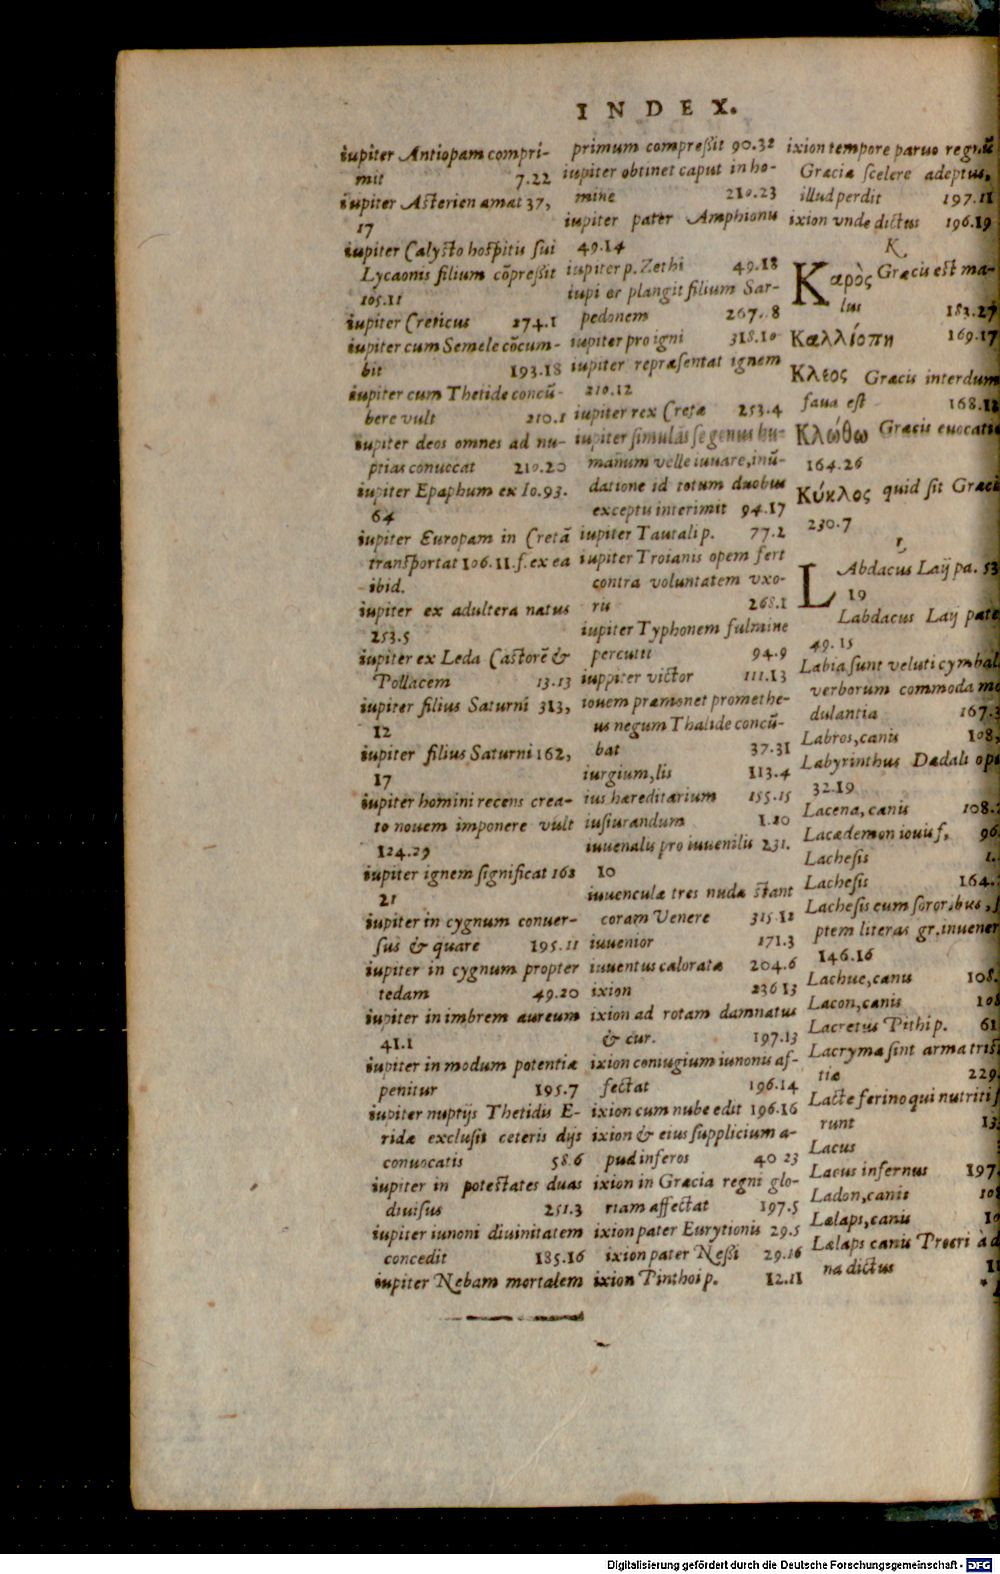 INDEX.
iupiter Antiopam compri-
mit 7.22
iupiter Asterien amat 37,
17
iupiter Calysto hospitis sui
Lycaonis filium cōpressit
105.11
iupiter Creticus 274.1
iupiter cum Semele cōcum-
bit 193.18
iupiter cum Thetide concū-
bere vult 210.1
iupiter deos omnes ad nu-
ptias conuocat 210.20
iupiter Epaphum ex Io.93.
64
iupiter Europam in Cretā
transportat 106.11.f.ex ea
ibid.
iupiter ex adultera natus
253.5
iupiter ex Leda Castorē &
Pollacem 13.13
iupiter filius Saturni 313,
12
iupiter filius Saturni 162,
17
iupiter homini recens crea-
to nouem imponere vult
124.29
iupiter ignem significat 168
21
iupiter in cygnum conuer-
sus & quare 195.11
iupiter in cygnum propter
tedam 49.20
iupiter in imbrem aureum
41.1
iupiter in modum potentiæ
penitur 195.7
iupiter nuptijs Thetidis E-
ridæ exclusit ceteris dijs
conuocatis 58.6
iupiter in potestates duas
diuisus 251.3
iupiter iunoni diuinitatem
concedit 185.16
iupiter Nebam mortalem
primum compressit 90.32
iupiter obtinet caput in ho-
mine 210.23
iupiter pater Amphionis
49.14
iupiter p. Zethi 49.18
iupi er plangit filium Sar-
pedonem 267.8
iupiter pro igni 318.10
iupiter repræsentat ignem
210.12
iupiter rex Cretæ 253.4
iupiter simulās se genus hu-
manum velle iuuare, inū-
datione id totum duobus
exceptis interimit 94.17
iupiter Tautali p. 77.2
iupiter Troianis opem fert
contra voluntatem vxo-
ris 268.1
iupiter Typhonem fulmine
percutit 94.9
iuppiter victor 111.13
iouem præmonet promethe-
us negum Thalide concū-
bat 37.31
iurgium, lis 113.4
ius hæreditarium 155.15
iusiurandum 1.20
iuuenalis pro iuuenilis 231.
10
iuuenculæ tres nudæ stant
coram Venere 315.12
iuuenior 171.3
iuuentus caloratæ 204.6
ixion 236 13
ixion ad rotam damnatus
& cur. 197.13
ixion coniugium iunonis af-
fectat 196.14
ixion cum nube edit 196.16
ixion & eius supplicium a-
pud inferos 40 23
ixion in Græcia regni glo-
riam affectat 197.5
ixion pater Eurytionis 29.5
ixion pater Nessi 29.16
ixion Pinthoi p. 12.11
ixion tempore paruo regnū
Græciæ scelere adeptus,
illud perdit 197.11
ixion vnde dictus 196.19
K
Καρὸς Græcis est ma-
lus 183.27
Καλλίοπη 169.17
Κλεος Græcis interdum
faua est 168.12
Κλώθω Græcis euocatio
164.26
Κύκλος quid sit Græcis
230.7
L
LAbdacus Laij pa. 53
19
Labdacus Laij pate
49.15
Labia sunt veluti cymbal
verborum commoda mo
dulantia 167.3
Labros, canis 108,
Labyrinthus Dædali op
32.19
Lacena, canis 108.
Lacædemon iouis f. 96
Lachesis 1.
Lachesis 164.
Lachesis cum sororibus, s
ptem literas gr. inuener
146.16
Lachue, canis 108.
Lacon, canis 108
Lacretus Pithi p. 61
Lacryma sint arma trist
tiæ 229.
Lacte ferino qui nutriti f
runt 13
Lacus
Lacus infernus 197.
Ladon, canis 108
Lælaps, canis 10
Lælaps canis Procri à d
na dictus 11
Digitalisierung gefördert durch die Deutsche Forschungsgemeinschaft - DFG